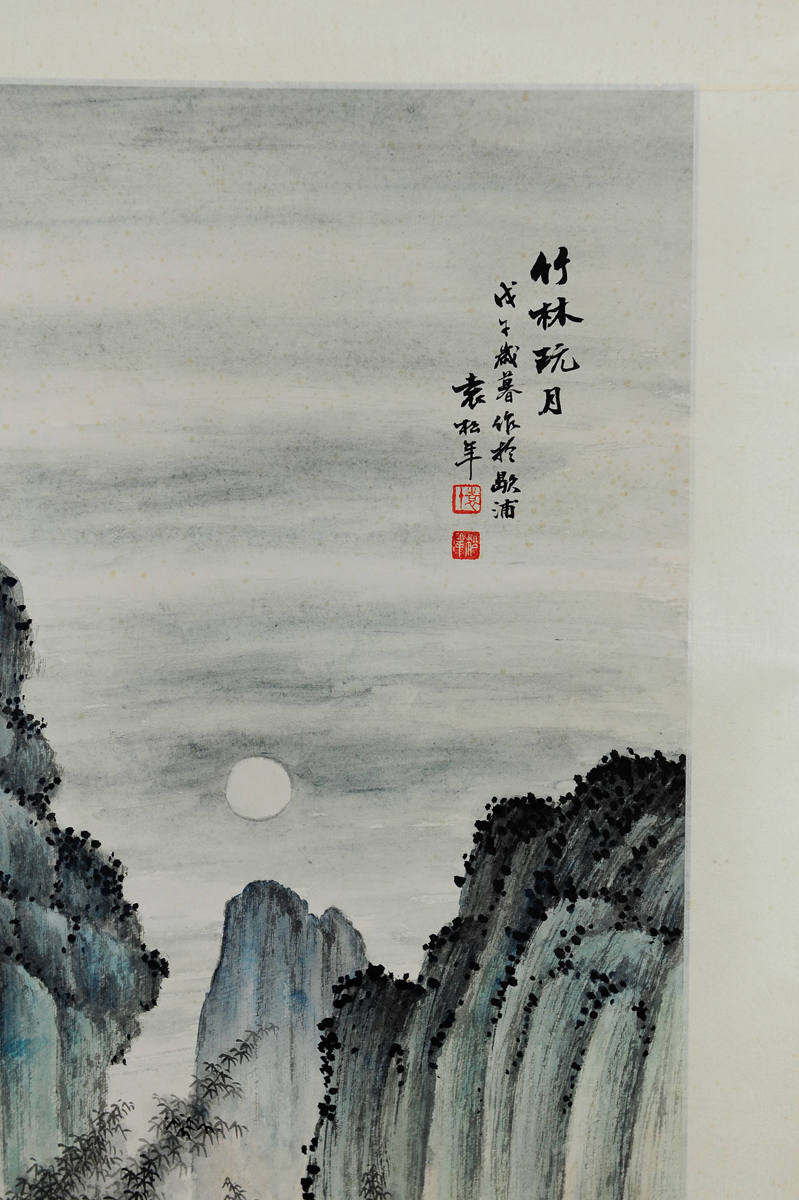 竹林玩月
戊午歲暮作於歇浦
袁松年